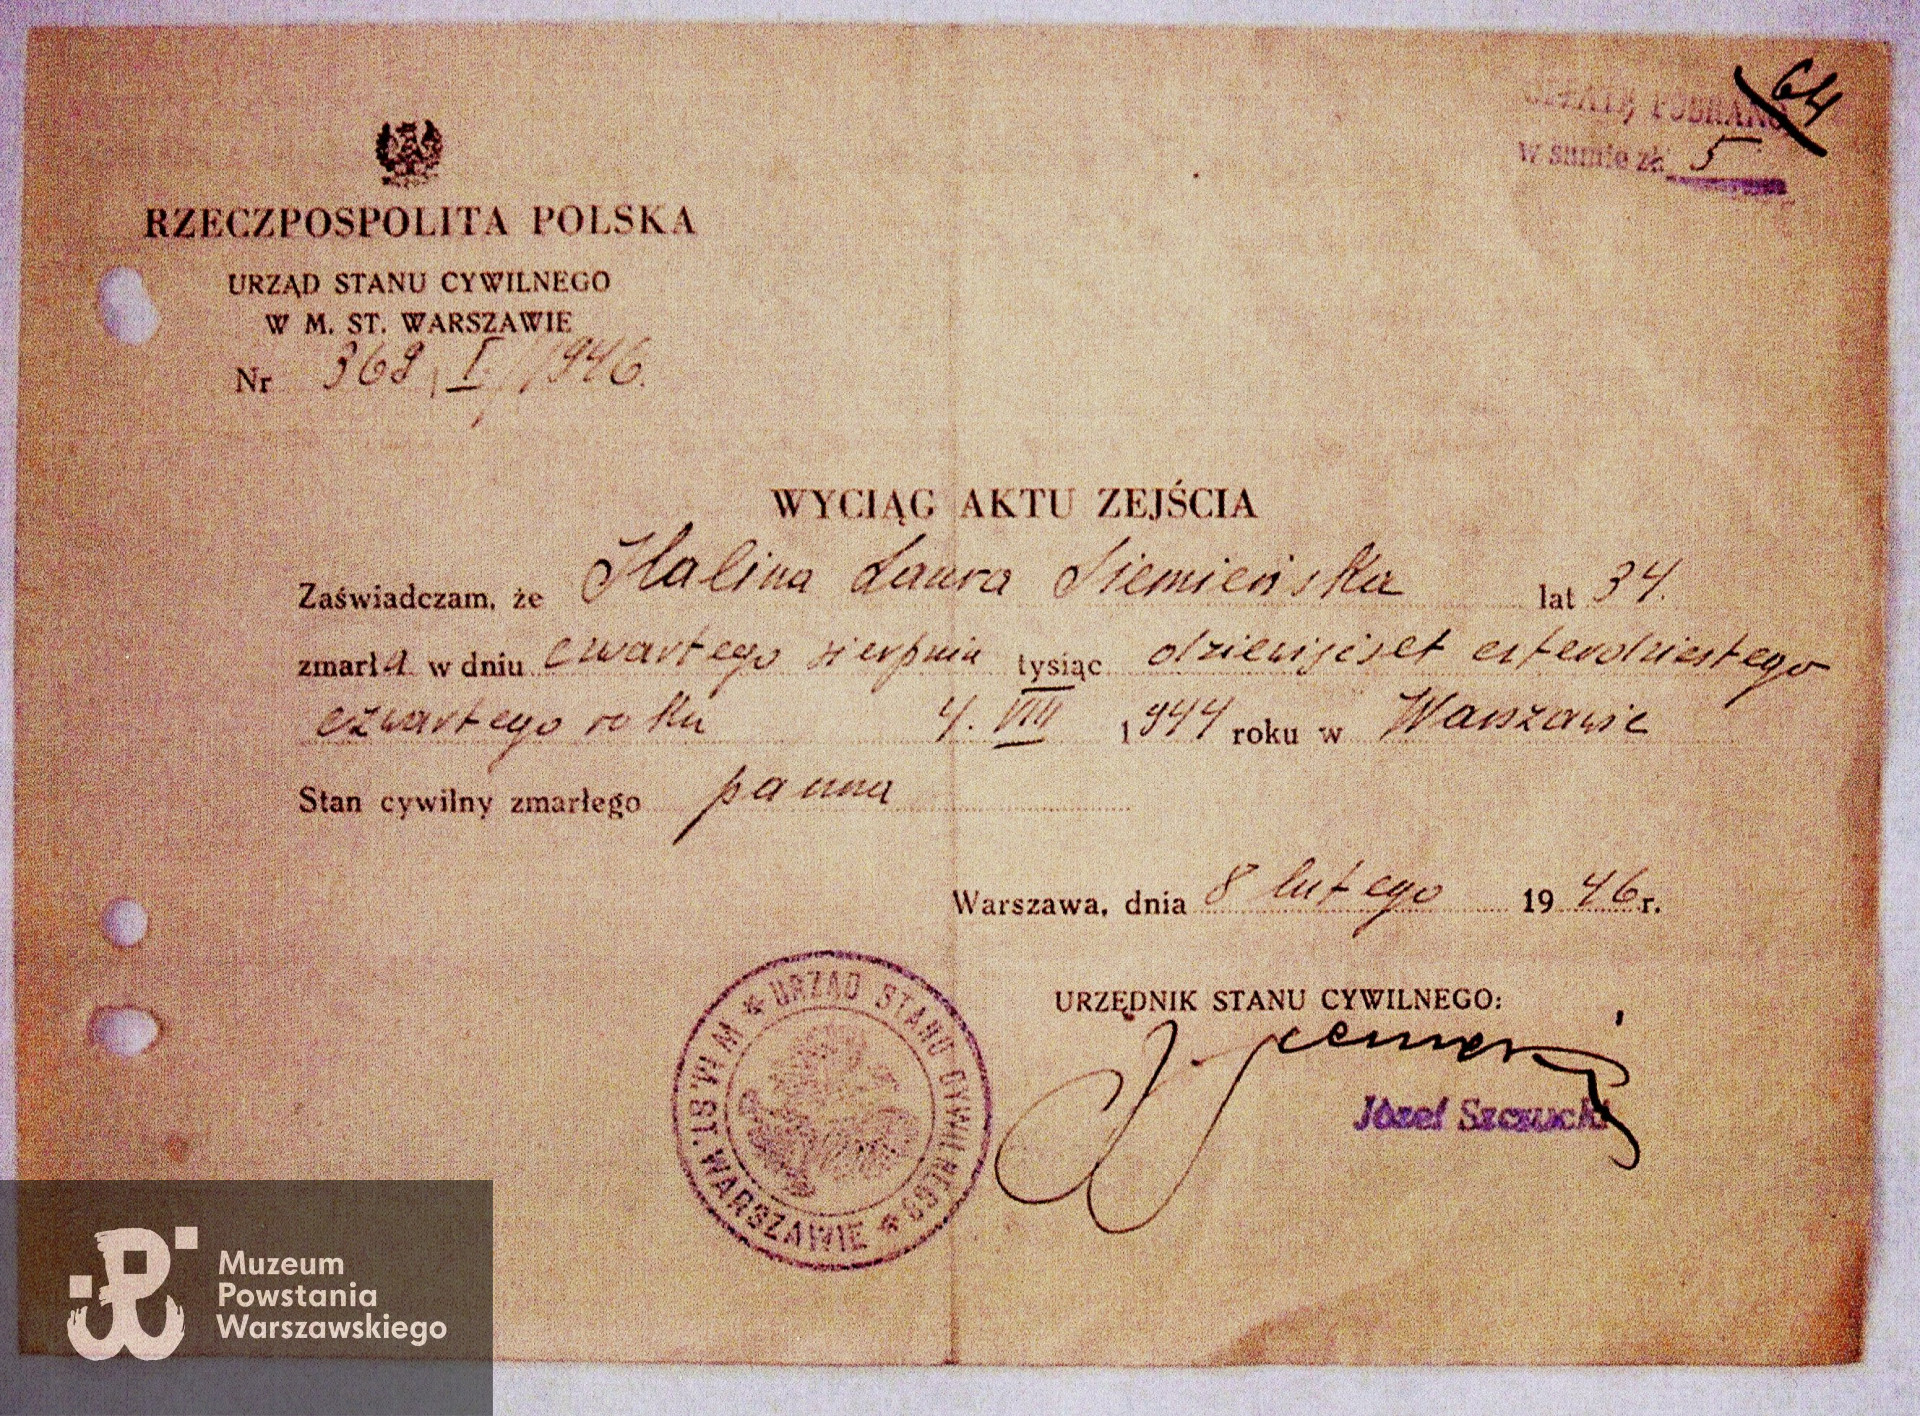 OPŁATĘ POBRANO
64
w sumie zł. 5
RZECZPOSPOLITA POLSKA
URZĄD STANU CYWILNEGO
W M. ST. WARSZAWIE
Nr 369 I/1946.
WYCIĄG AKTU ZEJŚCIA
Zaświadczam, że Halina Laura Siemieńska lat 34.
zmarła w dniu czwartego sierpnia tysiąc dziewięćset czterdziestego
czwartego roku 4. VIII 1944 roku w Warszawie
Stan cywilny zmarłego panna
Warszawa, dnia 8 lutego 1946 r.
URZĘDNIK STANU CYWILNEGO:
Józef Szczucki
* URZĄD STANU CYWILNEGO * W M. ST. WARSZAWIE
Muzeum
Powstania
Warszawskiego